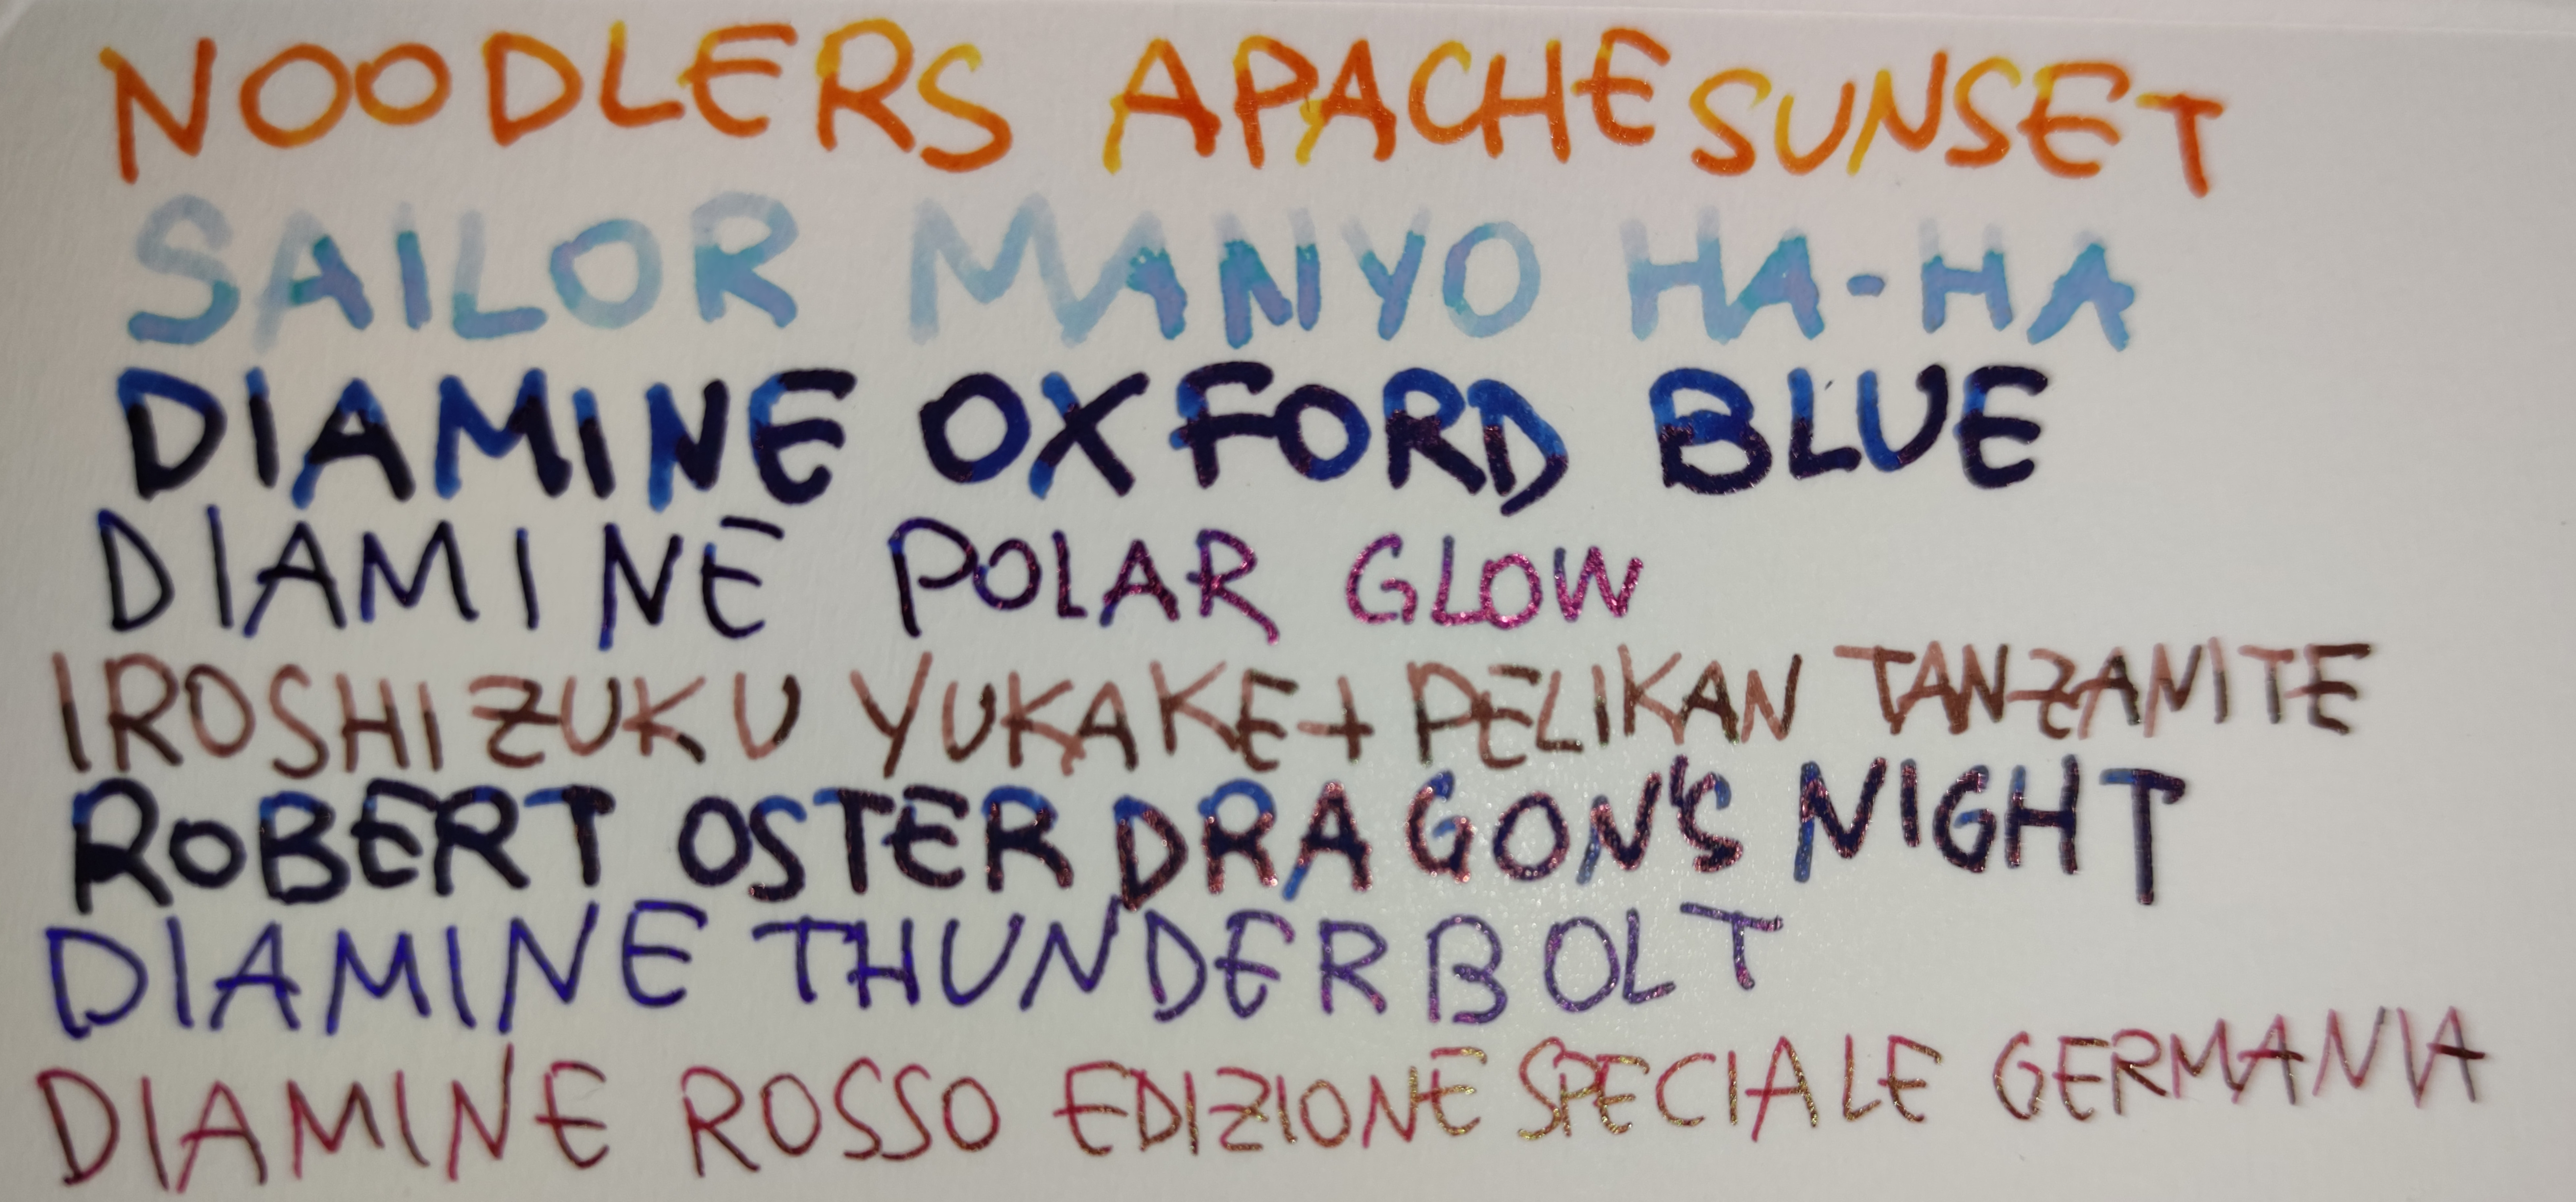 NOODLERS APACHE SUNSET
SAILOR MANYO HA-HA
DIAMINE OXFORD BLUE
DIAMINE POLAR GLOW
IROSHIZUKU YUKAKE+ PELIKAN TANZANITE
ROBERT OSTER DRAGON'S NIGHT
DIAMINE THUNDERBOLT
DIAMINE ROSSO EDIZIONE SPECIALE GERMANIA